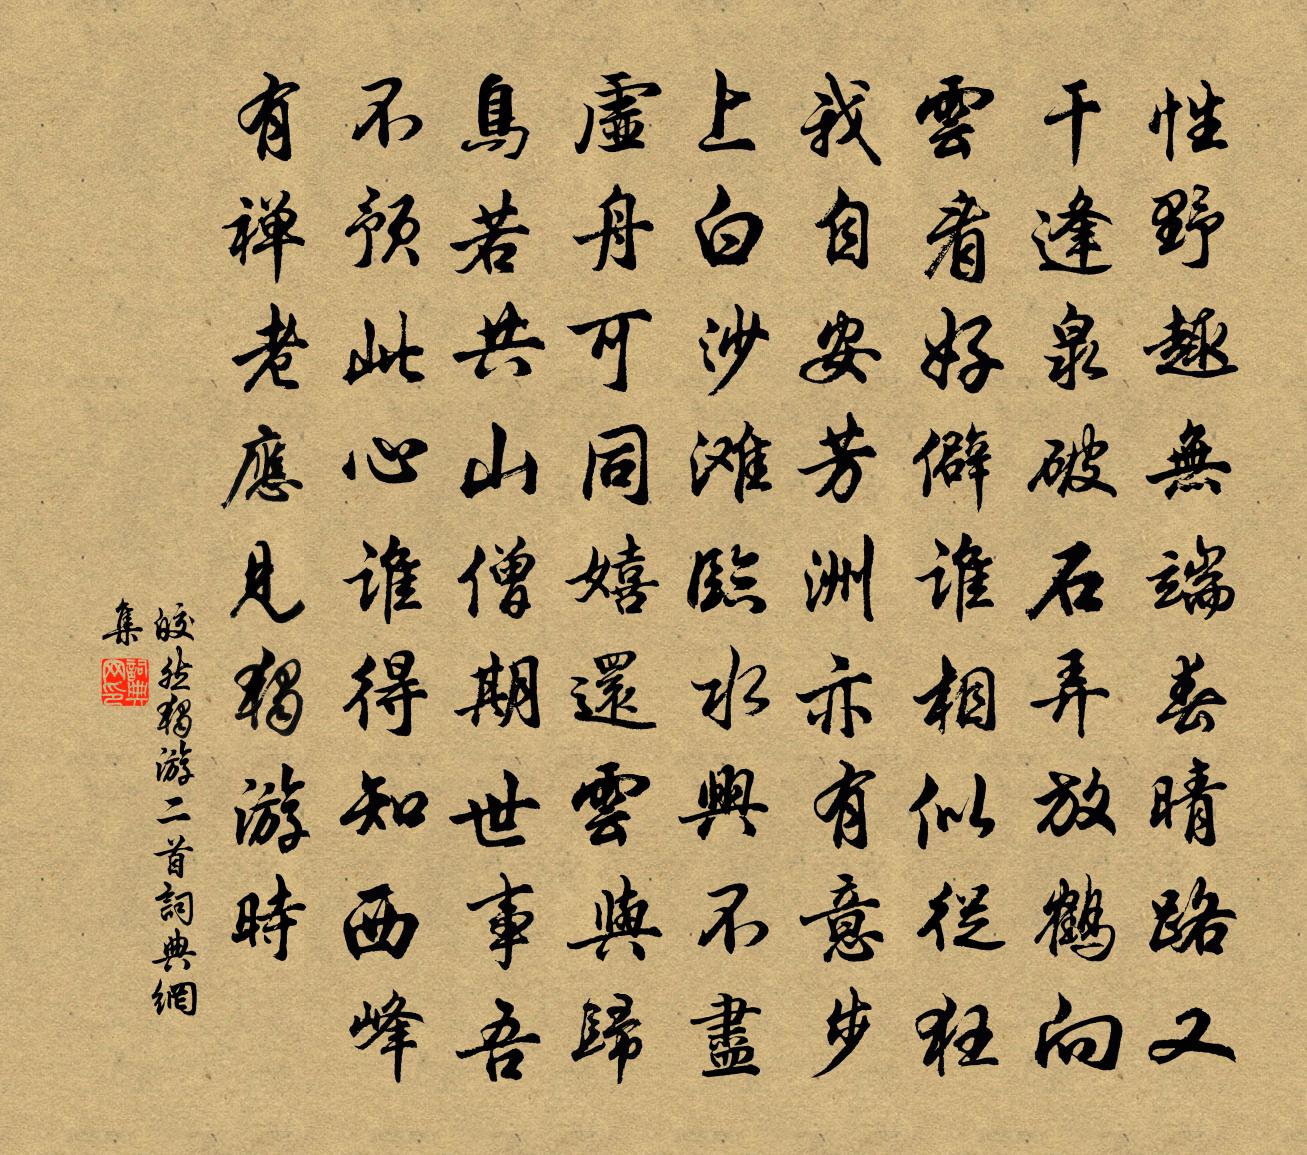 性野趣無端春晴路又
干逢泉破石弄放鶴向
雲看好僻誰相似從狂
我自安芳洲亦有意步
上白沙滩臨水興不盡
虛舟可同嬉還雲與歸
鳥若共山僧期世事吾
不預此心誰得知西峰
有禅老應見獨游時
皎然獨游二首詞典網
集
詞典网印